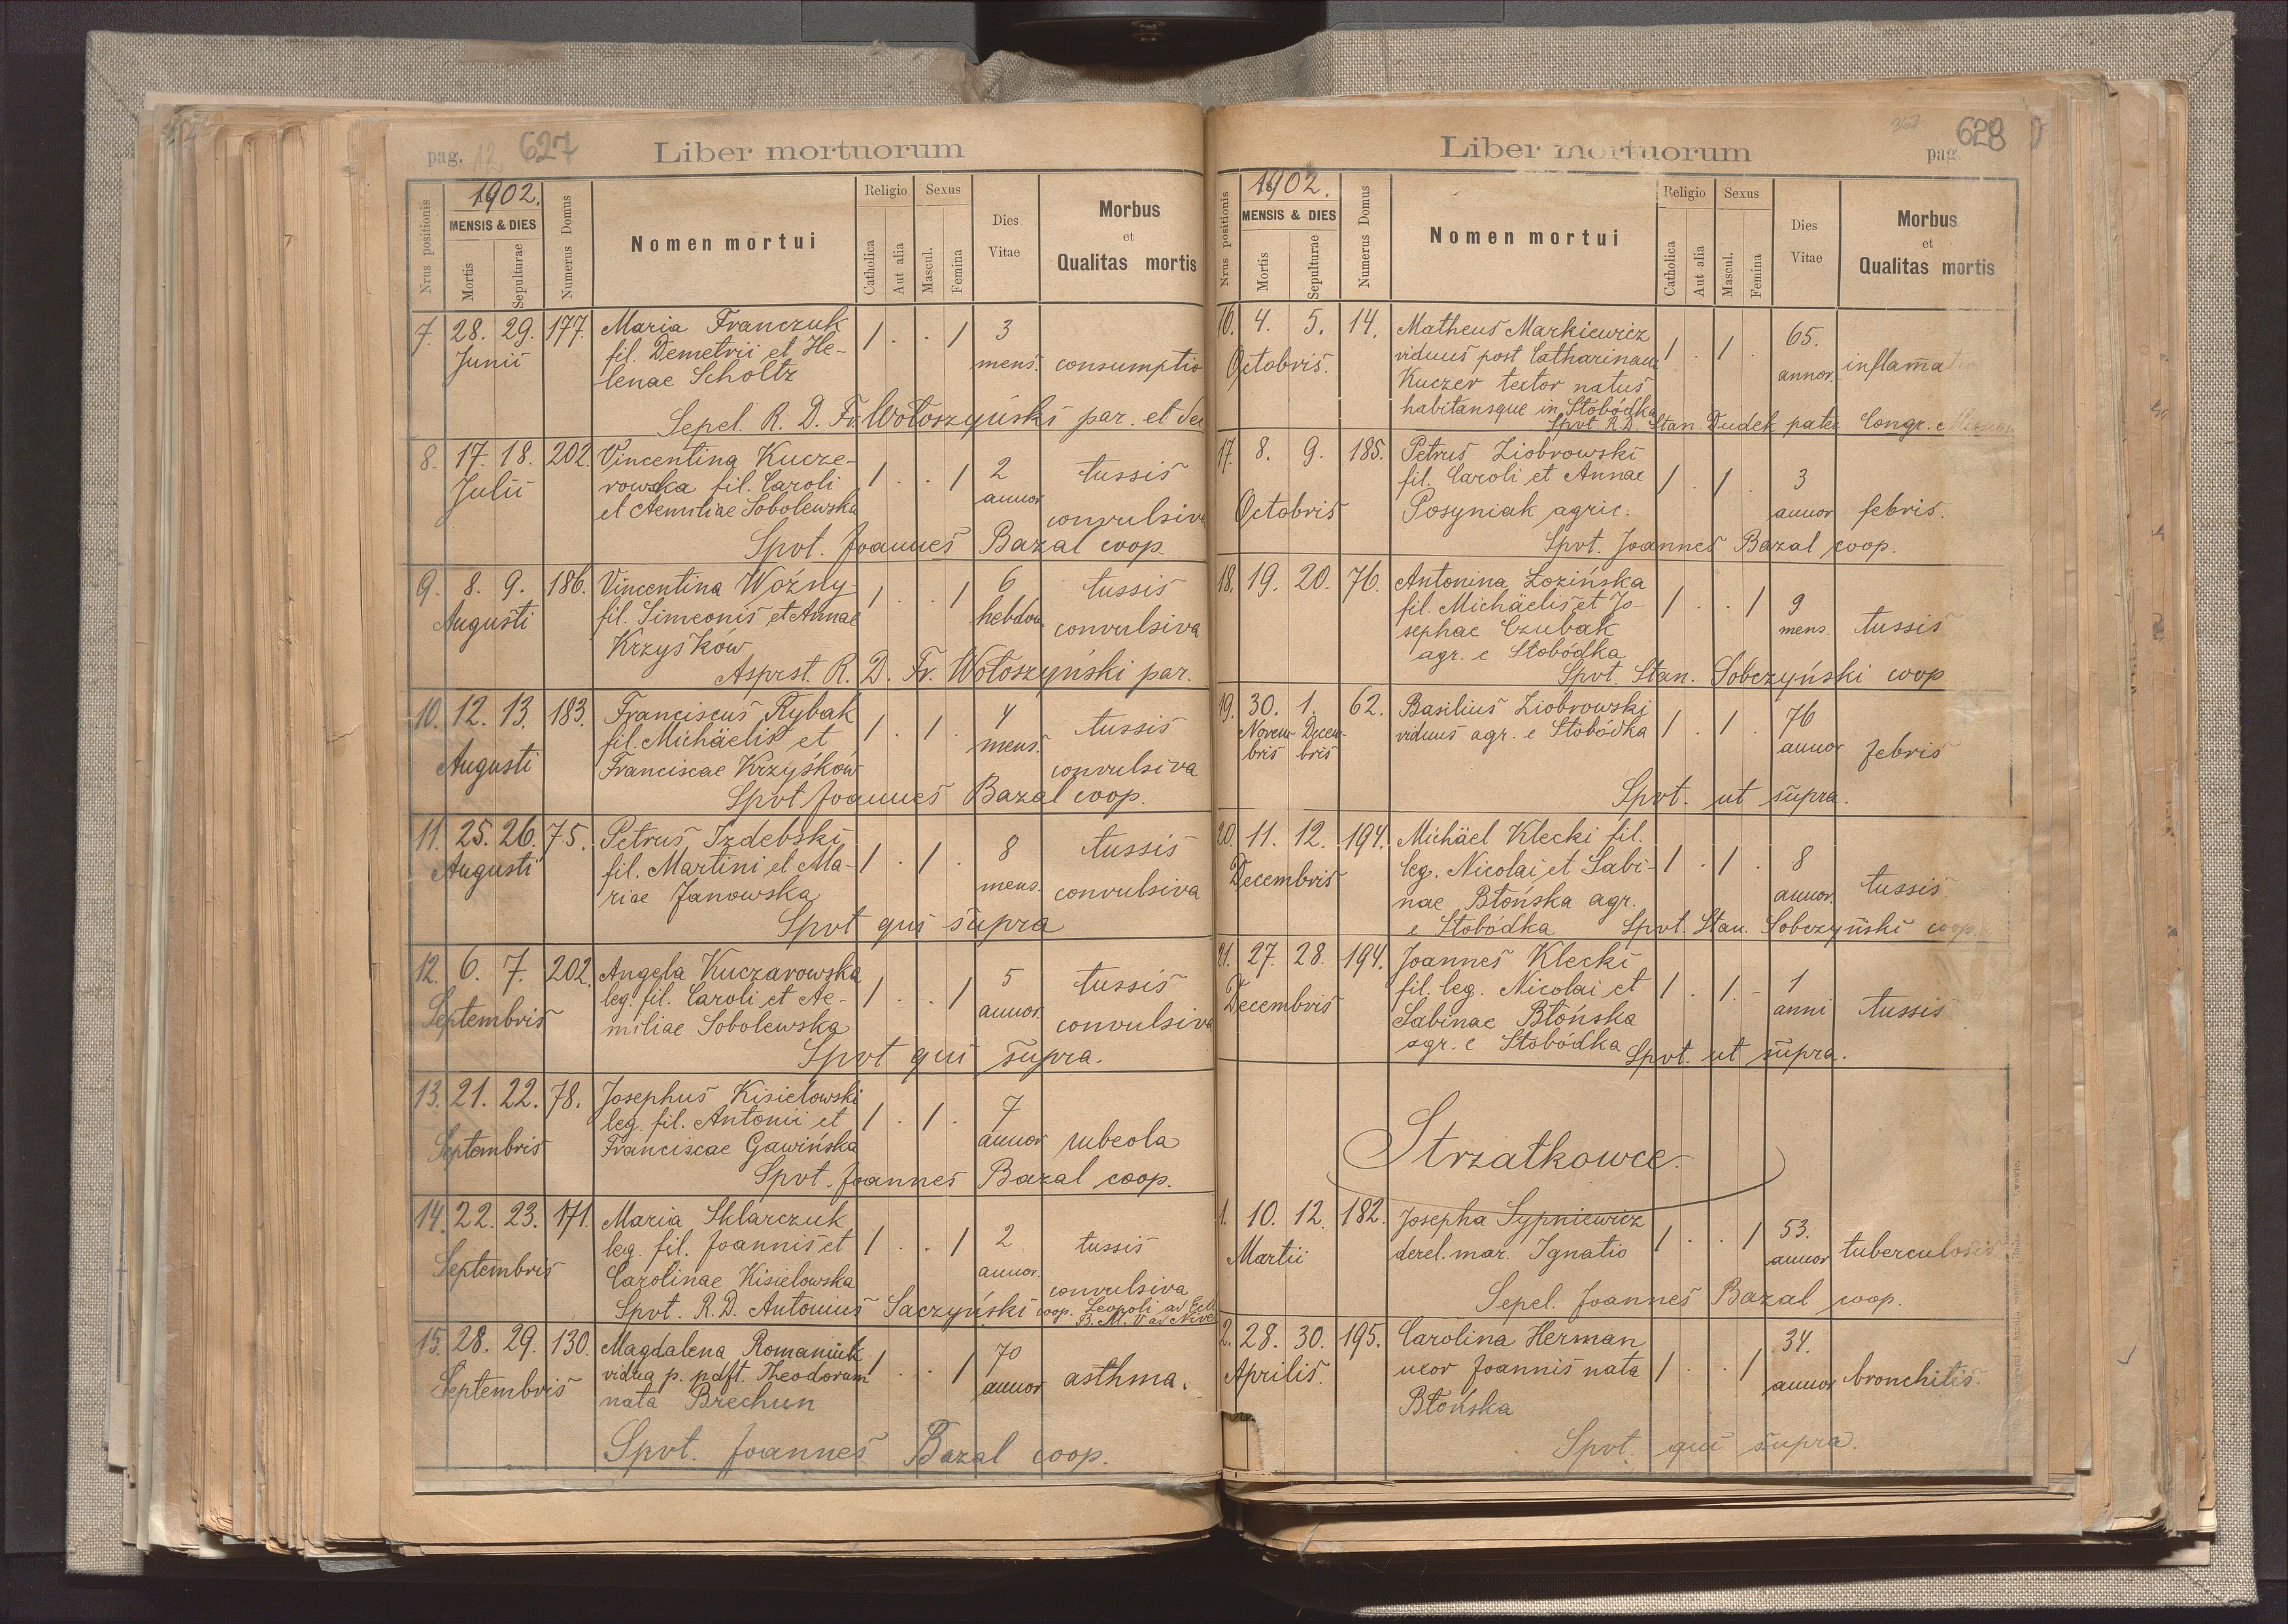 pag. 12. 627
Liber mortuorum
1902.
Nrus positionis
MENSIS & DIES
Mortis
Sepulturae
Numerus Domus
Nomen mortui
Religio
Catholica
Aut alia
Sexus
Mascul.
Femina
Dies
Vitae
Morbus
et
Qualitas mortis
7. 28. 29. 177. Maria Franczuk 1 . . 1 3
Junii fil. Demetrii et He- mens. consumptio
lenae Scholtz
Sepel. R. D. Fr. Wołoszyński par. et
8. 17. 18. 202. Vincentina Kucze- 1 . . 1 2 tussis
Julii rowska fil. Caroli annor convulsiva
et Aemiliae Sobolewska
Spvt. Joannes Bazal coop.
9. 8. 9. 186. Vincentina Woźny 1 . . 1 6 tussis
Augusti fil. Simeonis et Annae hebdom convulsiva
Krzyśków
Asprst. R. D. Fr. Wołoszyński par.
10. 12. 13. 183. Franciscus Rybak 1 . 1 . 4 tussis
Augusti fil. Michäelis et mens. convulsiva
Franciscae Krzyśków
Spvt Joannes Bazal coop.
11. 25. 26. 75. Petrus Izdebski 1 . 1 . 8 tussis
Augusti fil. Martini et Ma- mens. convulsiva
riae Janowska
Spvt qui supra
12. 6. 7. 202. Angela Kuczarowska 1 . . 1 5 tussis
Septembris leg. fil. Caroli et Ae- annor. convulsiva
miliae Sobolewska
Spvt qui supra.
13. 21. 22. 78. Josephus Kisielowski 1 . 1 . 7
Septembris leg. fil. Antonii et annor rubeola
Franciscae Gawińska
Spvt. Joannes Bazal coop.
14. 22. 23. 171. Maria Sklarczuk 1 . . 1 2 tussis
Septembris leg. fil. Joannis et annor. convulsiva
Carolinae Kisielowska
Spvt. R. D. Antonius Saczyński coop. Leopoli ad
B. M. V ad Nives
15. 28. 29. 130. Magdalena Romaniuk 1 . . 1 70
Septembris vidua p. pdft. Theodorum annor asthma.
nata Brechun
Spvt. Joannes Bazal coop.
Liber mortuorum
pag 628
1902.
Nrus positionis
MENSIS & DIES
Mortis
Sepulturae
Numerus Domus
Nomen mortui
Religio
Catholica
Aut alia
Sexus
Mascul.
Femina
Dies
Vitae
Morbus
et
Qualitas mortis
16. 4. 5. 14. Matheus Markiewicz 1 . 1 . 65.
Octobris. viduus post Catharinam annor. inflam̄atio
Kuczer textor natus
habitansque in Słobódka
Spvt. R.D. Stan. Dudek pater Congr. Mission
17. 8. 9. 185. Petrus Ziobrowski
fil. Caroli et Annae 1 . 1 . 3
Octobris Posyniak agric. annor febris.
Spvt. Joannes Bazal coop.
18. 19. 20. 76. Antonina Łozińska
fil. Michäelis et Jo- 1 . . 1 9
sephae Czubak mens. tussis
agr. e Słobódka
Spvt. Stan. Sobczyński coop
19. 30. 1. 62. Basilius Ziobrowski 76
Novem- Decem- viduus agr. e Słobódka 1 . 1 . annor febris
bris bris
Spvt. ut supra.
20. 11. 12. 194. Michäel Klecki fil.
Decembris leg. Nicolai et Sabi- 1 . 1 . 8
nae Błońska agr. annor. tussis
e Słobódka Spvt. Stan. Sobczyński coop.
21. 27. 28. 194. Joannes Klecki
Decembris fil. leg. Nicolai et 1 . 1. - 1
Sabinae Błońska anni tussis
agr. e Słobódka Spvt. ut supra.
Strzałkowce.
1. 10. 12. 182. Josepha Sypniewicz 1 . . 1 53.
Martii derel. mar. Ignatio annor tuberculosis
Sepel. Joannes Bazal coop.
2. 28. 30. 195. Carolina Herman 34.
Aprilis. uxor Joannis nata 1 . . 1 annor bronchitis.
Błońska
Spvt. qui supra.